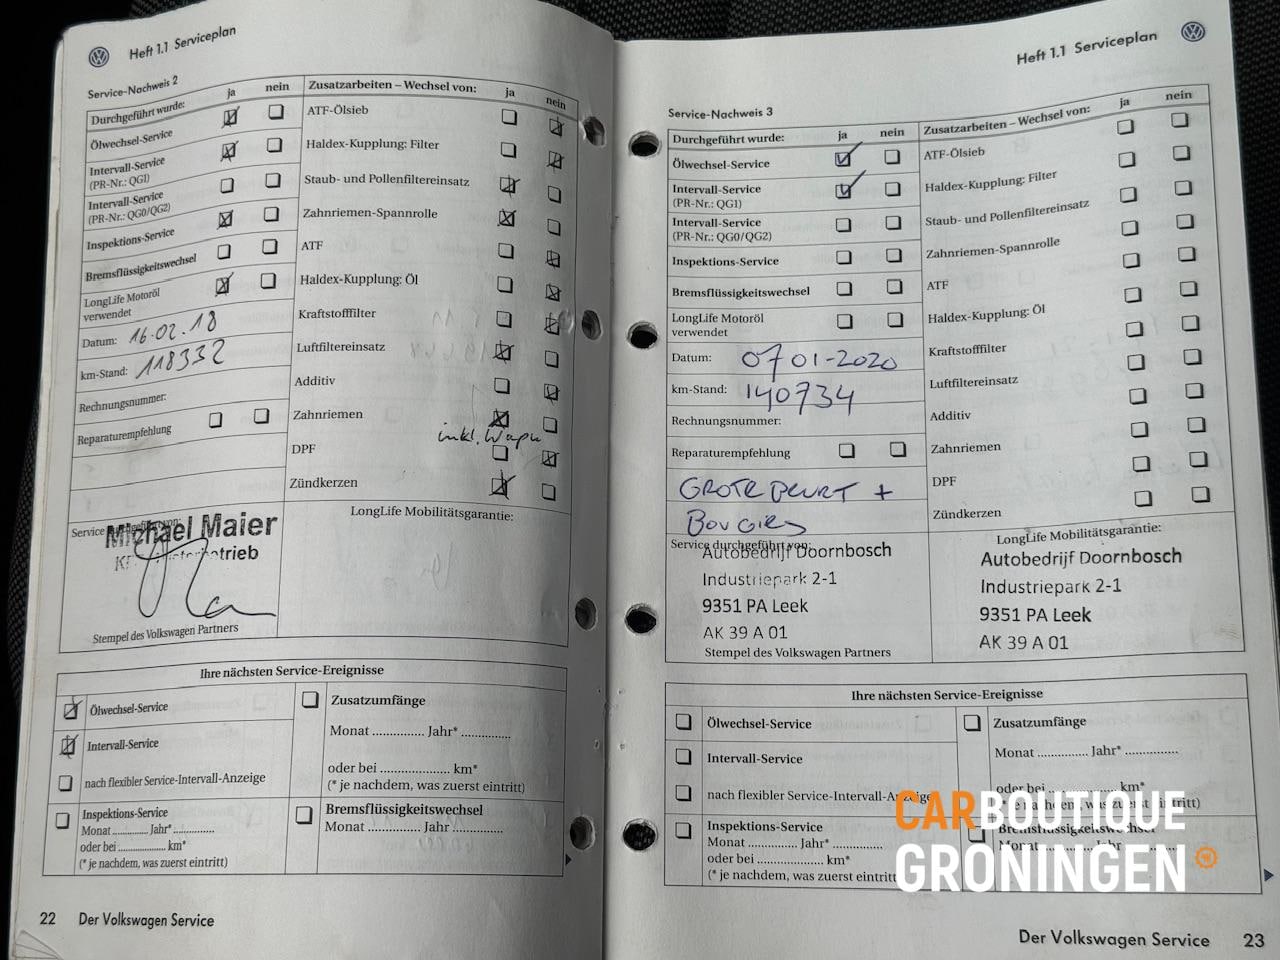 Heft 1.1 Serviceplan
Service-Nachweis 2
Durchgeführt wurde: ja nein
Ölwechsel-Service
Intervall-Service
(PR-Nr.: QG1)
Intervall-Service
(PR-Nr.: QG0/QG2)
Inspektions-Service
Bremsflüssigkeitswechsel
LongLife Motoröl
verwendet
Datum: 16.02.18
km-Stand: 118332
Rechnungsnummer:
Reparaturempfehlung
Zusatzarbeiten – Wechsel von: ja nein
ATF-Ölsieb
Haldex-Kupplung: Filter
Staub- und Pollenfiltereinsatz
Zahnriemen-Spannrolle
ATF
Haldex-Kupplung: Öl
Kraftstofffilter
Luftfiltereinsatz
Additiv
Zahnriemen
inkl. Wapu
DPF
Zündkerzen
Michael Maier
Stempel des Volkswagen Partners
LongLife Mobilitätsgarantie:
Ihre nächsten Service-Ereignisse
Ölwechsel-Service
Intervall-Service
nach flexibler Service-Intervall-Anzeige
Inspektions-Service
Monat ............ Jahr* ..............
oder bei .................... km*
(* je nachdem, was zuerst eintritt)
Zusatzumfänge
Monat .............. Jahr* ..............
oder bei .................... km*
(* je nachdem, was zuerst eintritt)
Bremsflüssigkeitswechsel
Monat .............. Jahr ..............
22 Der Volkswagen Service
Heft 1.1 Serviceplan
Service-Nachweis 3
Durchgeführt wurde: ja nein
Ölwechsel-Service
Intervall-Service
(PR-Nr.: QG1)
Intervall-Service
(PR-Nr.: QG0/QG2)
Inspektions-Service
Bremsflüssigkeitswechsel
LongLife Motoröl
verwendet
Datum: 07 01-2020
km-Stand: 140734
Rechnungsnummer:
Reparaturempfehlung
GROTE BEURT +
BOUGIES
Service durchgeführt von:
Autobedrijf Doornbosch
Industriepark 2-1
9351 PA Leek
AK 39 A 01
Stempel des Volkswagen Partners
Zusatzarbeiten – Wechsel von: ja nein
ATF-Ölsieb
Haldex-Kupplung: Filter
Staub- und Pollenfiltereinsatz
Zahnriemen-Spannrolle
ATF
Haldex-Kupplung: Öl
Kraftstofffilter
Luftfiltereinsatz
Additiv
Zahnriemen
DPF
Zündkerzen
LongLife Mobilitätsgarantie:
Autobedrijf Doornbosch
Industriepark 2-1
9351 PA Leek
AK 39 A 01
Ihre nächsten Service-Ereignisse
Ölwechsel-Service
Intervall-Service
nach flexibler Service-Intervall-Anzeige
Inspektions-Service
Monat .............. Jahr* ..............
oder bei .................... km*
(* je nachdem, was zuerst eintritt)
Zusatzumfänge
Monat .............. Jahr* ..............
oder bei .................... km*
(* je nachdem, was zuerst eintritt)
Bremsflüssigkeitswechsel
CARBOUTIQUE
GRONINGEN
Der Volkswagen Service 23